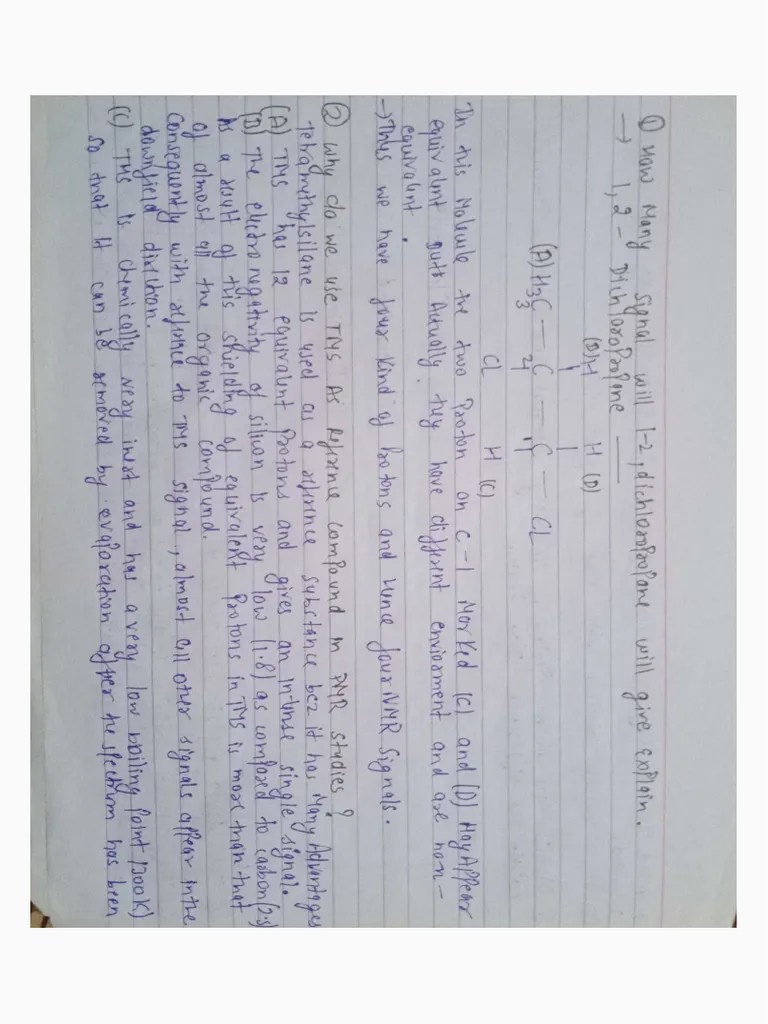 ① How Many signal will 1-2, dichloropropane will give explain.
→ 1, 2 - Dichloropropane
(B)H H (D)
(A) H3C — C — C — Cl
3 2 1
Cl H (C)
In this Molecule the two Proton on C-1 Marked (C) and (D) May Appear
equivalent Butt Actually they have different enviorment and are non-
equivalent.
→ Thus we have four kind of Protons and hence four NMR Signals.
② Why do we use TMS As Reference Compound in PMR studies?
Tetramethylsilane is used as a reference substance bcz it has Many Advantages
(A) TMS has 12 equivalent Protons and gives an intense single signal.
(B) The electronegativity of silicon is very low (1.8) as compared to carbon (2.5)
As a result of this shielding of equivalent Protons in TMS is more than that
of almost all the organic compound.
Consequently with refrence to TMS signal, almost all other signals appear in the
downfield dirction.
(C) TMS is chemically very inert and has a very low boiling point (300K)
so that It can be removed by evaporation after the spectrum has been